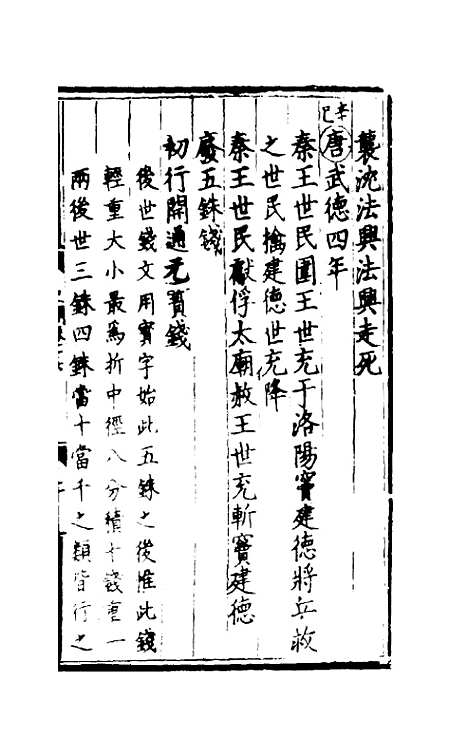 襲沈法興法興走死
辛巳
唐武德四年
秦王世民圍王世充于洛陽竇建德將兵救
之世民擒建德世充降
秦王世民獻俘太廟赦王世充斬竇建德
廢五銖錢
初行開通元寶錢
後世錢文用寳字始此五銖之後惟此錢
輕重大小最爲折中徑八分積十錢重一
兩後世三銖四銖當十當千之類皆行之